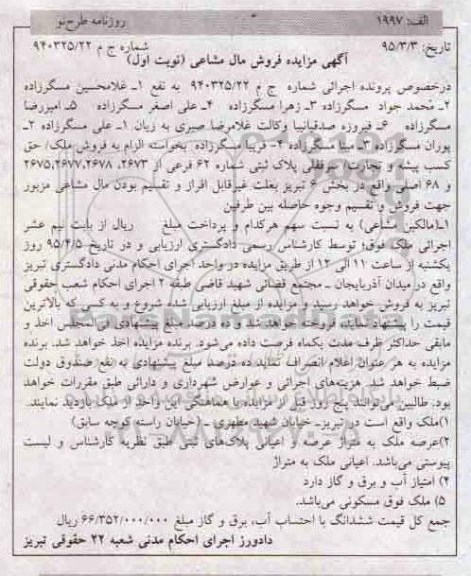 الف: ۱۹۹۷
روزنامه طرح‌نو
تاریخ: ۹۵/۳/۳
شماره ج م ۹۴۰۳۲۵/۲۲
آگهی مزایده فروش مال مشاعی (نوبت اول)
درخصوص پرونده اجرائی شماره ج م ۹۴۰۳۲۵/۲۲ به نفع ۱ـ غلامحسین مسگرزاده
۲ـ محمد جواد مسگرزاده ۳ـ زهرا مسگرزاده ۴ـ علی اصغر مسگرزاده ۵ـ امیررضا
مسگرزاده ۶ـ فیروزه صدقیانیبا وکالت غلامرضا صبری به زیان ۱ـ علی مسگرزاده ۲ـ
پوران مسگرزاده ۳ـ مینا مسگرزاده ۴ـ فریبا مسگرزاده بخواسته الزام به فروش ملک/ حق
کسب پیشه و تجارت/ سرقفلی پلاک ثبتی شماره ۶۲ فرعی از ۲۶۷۳، ۲۶۷۵،۲۶۷۷،۲۶۷۸
و ۶۸ اصلی واقع در بخش ۶ تبریز بعلت غیرقابل افراز و تقسیم بودن مال مشاعی مزبور
جهت فروش و تقسیم وجوه حاصله بین طرفین
۱ـ(مالکین مشاعی) به نسبت سهم هرکدام و پرداخت مبلغ ریال از بابت نیم عشر
اجرائی ملک فوق؛ توسط کارشناس رسمی دادگستری ارزیابی و در تاریخ ۹۵/۴/۵ روز
یکشنبه از ساعت ۱۱ الی ۱۲ از طریق مزایده در واحد اجرای احکام مدنی دادگستری تبریز
واقع در میدان آذربایجان ـ مجتمع قضائی شهید قاضی طبقه ۲ اجرای احکام شعب حقوقی
تبریز به فروش خواهد رسید و مزایده از مبلغ ارزیابی شده شروع و به کسی که بالاترین
قیمت را پیشنهاد نماید، فروخته خواهد شد و ده درصد مبلغ پیشنهادی فی‌المجلس اخذ و
مابقی حداکثر ظرف مدت یکماه فرصت داده می‌شود. برنده مزایده اخذ خواهد شد. برنده
مزایده به هر عنوان اعلام انصراف نماید ده درصد مبلغ پیشنهادی به نفع صندوق دولت
ضبط خواهد شد. هزینه‌های اجرائی و عوارض شهرداری و دارائی طبق مقررات خواهد
بود. طالبین می‌توانند پنج روز قبل از مزایده با هماهنگی این واحد از ملک بازدید نمایند.
۱)ملک واقع است در تبریزـ خیابان شهید مطهری ـ (خیابان راسته کوچه سابق)
۲)عرصه ملک به متراژ عرصه و اعیانی پلاک‌های ثبتی طبق نظریه کارشناس و لیست
پیوستی می‌باشد. اعیانی ملک به متراژ
۴) امتیاز آب و برق و گاز دارد
۵) ملک فوق مسکونی می‌باشد.
جمع کل قیمت ششدانگ با احتساب آب، برق و گاز مبلغ ۶۶/۳۵۲/۰۰۰/۰۰۰ ریال
دادورز اجرای احکام مدنی شعبه ۲۲ حقوقی تبریز
ParsNamadData